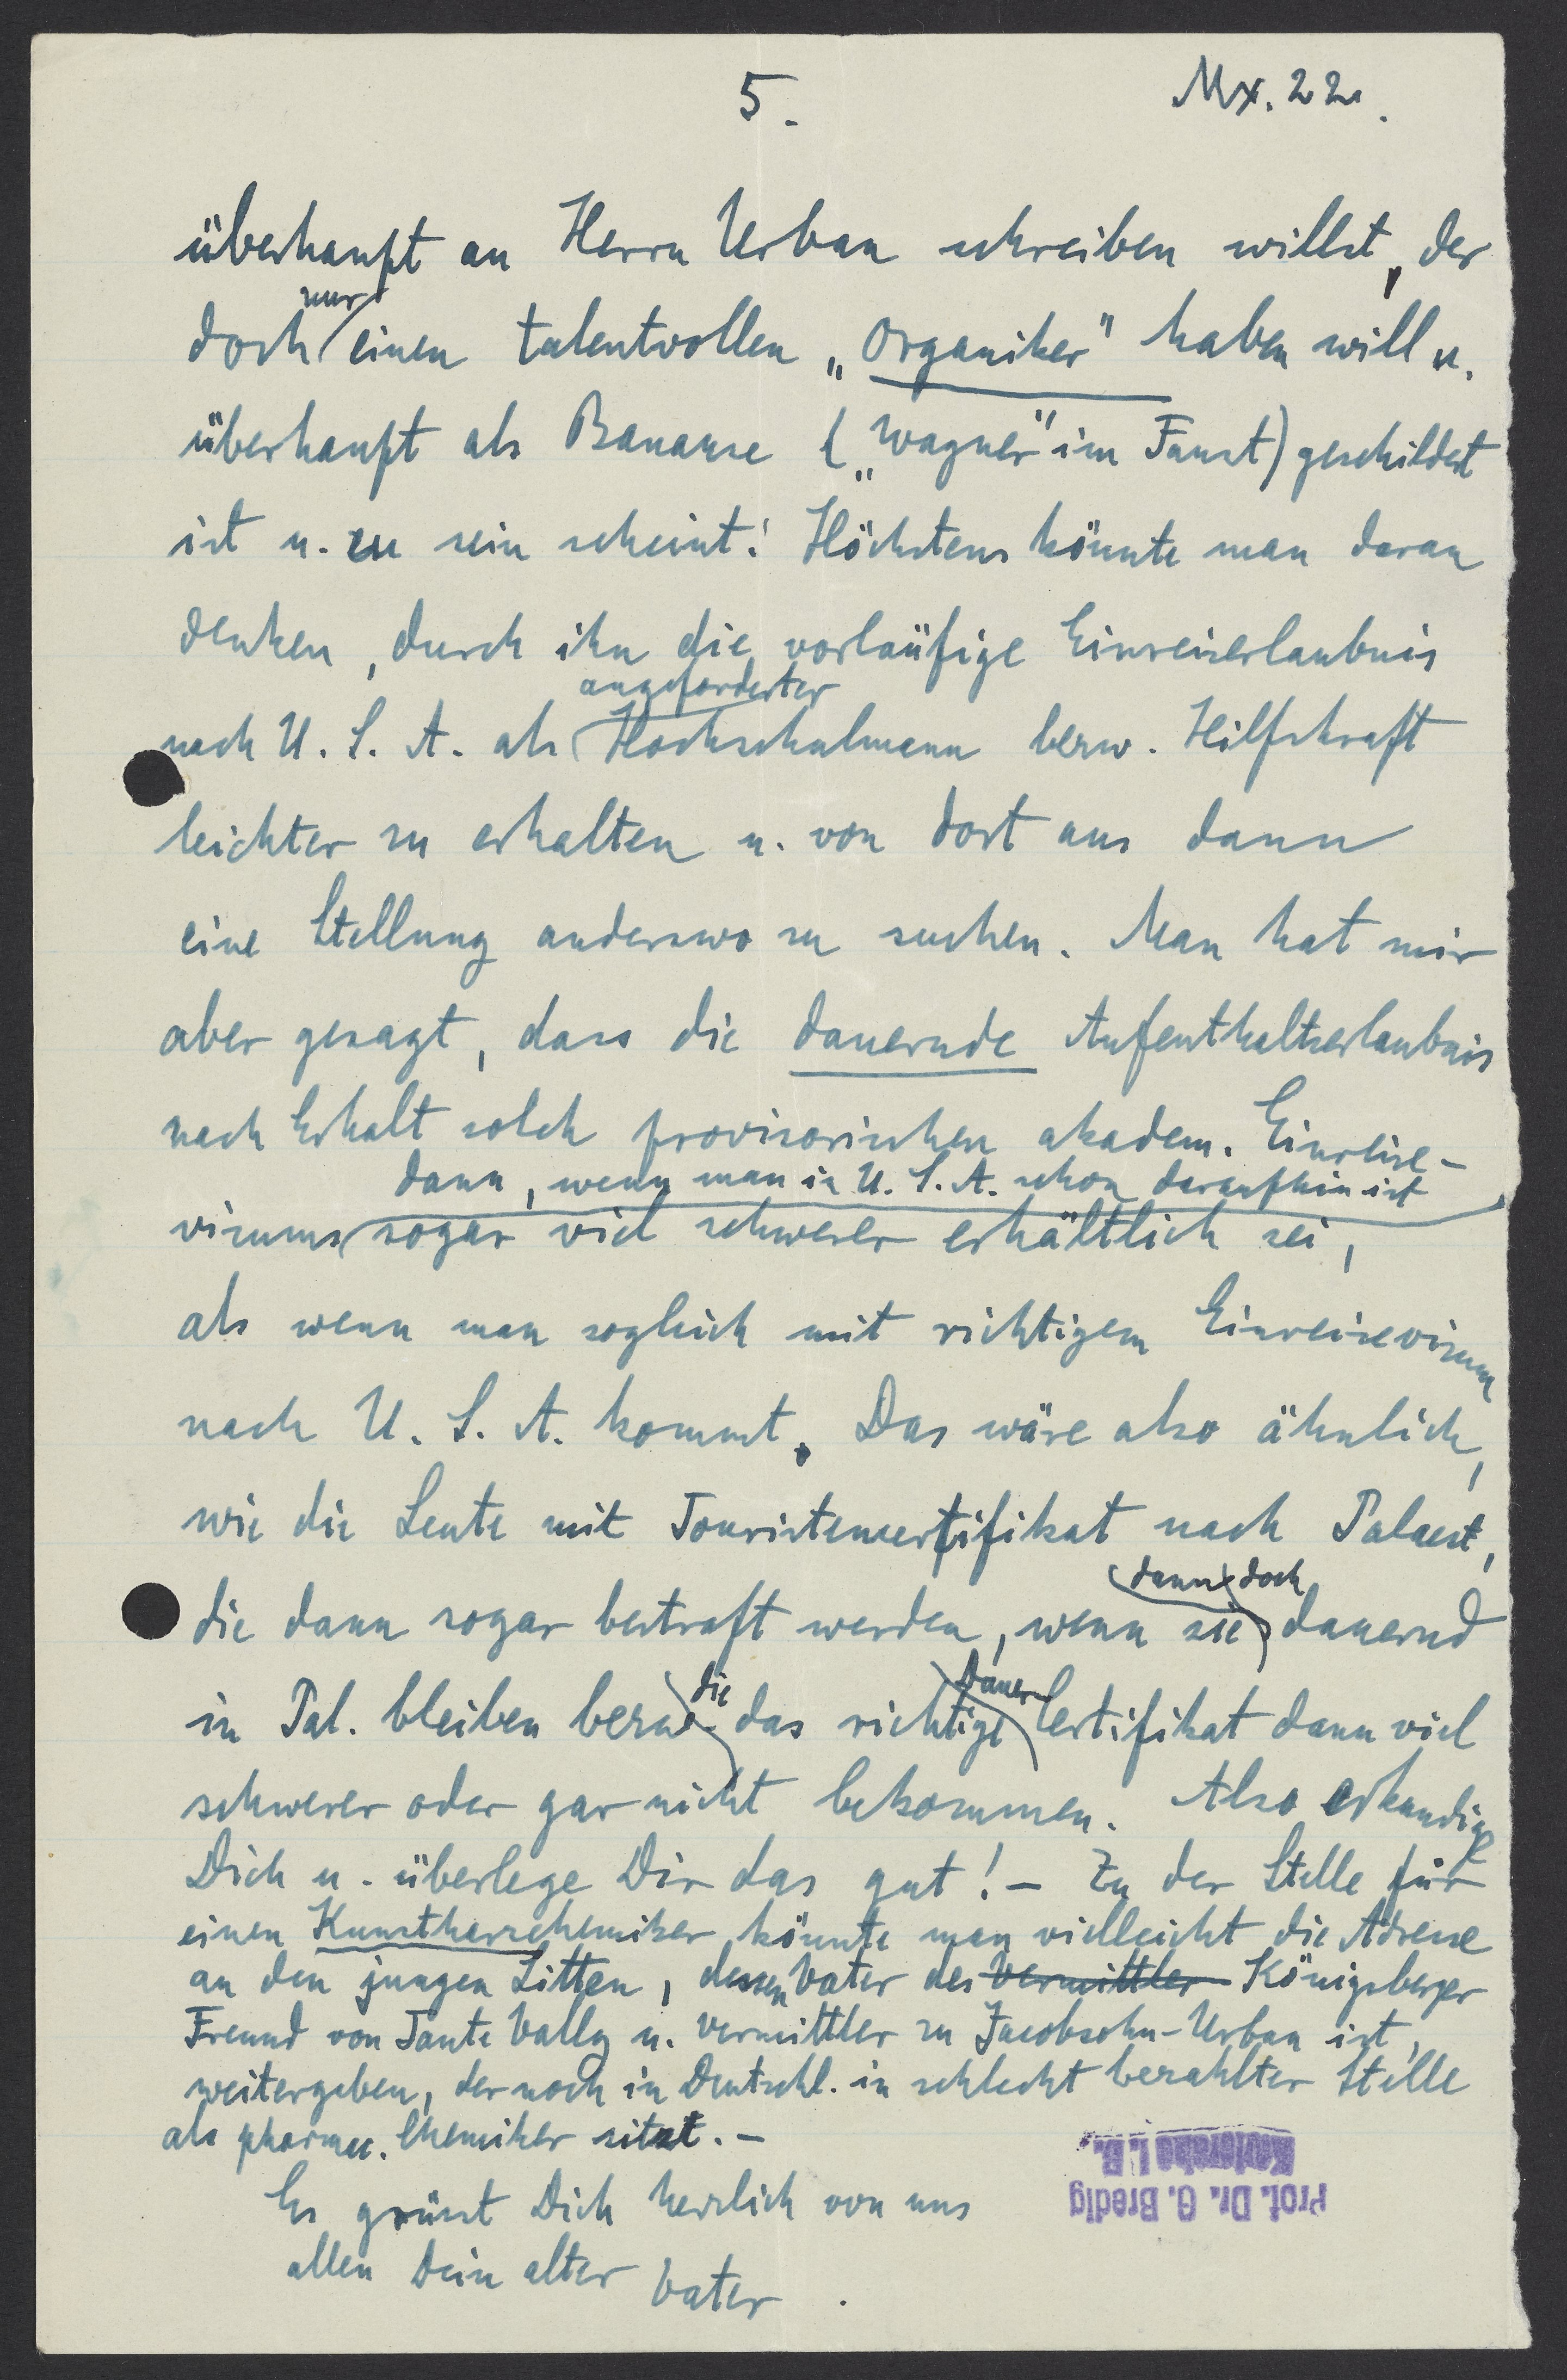 5.
Mx. 22.
überhaupt an Herrn Urban schreiben willst, der
doch nur einen talentvollen „Organiker" haben will u.
überhaupt als Banause („Wagner" im Faust) geschildert
ist u. zu sein scheint! Höchstens könnte man daran
denken, durch ihn die vorläufige Einreiseerlaubnis
nach U. S. A. als angeforderter Hochschulmann bezw. Hilfskraft
leichter zu erhalten u. von dort aus dann
eine Stellung anderswo zu suchen. Man hat mir
aber gesagt, dass die dauernde Aufenthaltserlaubnis
nach Erhalt solch provisorischen akadem. Einreise-
visums dann, wenn man in U. S. A. schon daraufhin ist
sogar viel schwerer erhältlich sei,
als wenn man sogleich mit richtigem Einreisevisum
nach U. S. A. kommt. Das wäre also ähnlich,
wie die Leute mit Touristencertifikat nach Palaest,
die dann sogar bestraft werden, wenn sie dann doch dauernd
in Pal. bleiben bezw. die das richtige Dauer Certifikat dann viel
schwerer oder gar nicht bekommen. Also erkundige
Dich u. überlege Dir das gut! – Zu der Stelle für
einen Kunstharzchemiker könnte man vielleicht die Adresse
an den jungen Litten, dessen Vater des Vermittler Königsberger
Freund von Tante Vally u. Vermittler zu Jacobsohn-Urban ist,
weitergeben, der noch in Deutschl. in schlecht bezahlter Stelle
als pharmac. Chemiker sitzt. –
Es grüsst Dich herzlich von uns
allen Dein alter Vater.
Prof. Dr. G. Bredig
Karlsruhe i. B.